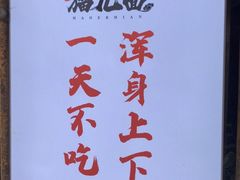 一天不吃
浑身上下